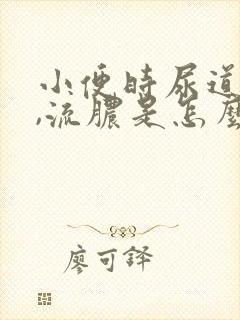 小便时尿道
,流膿是怎麼
廖可釋